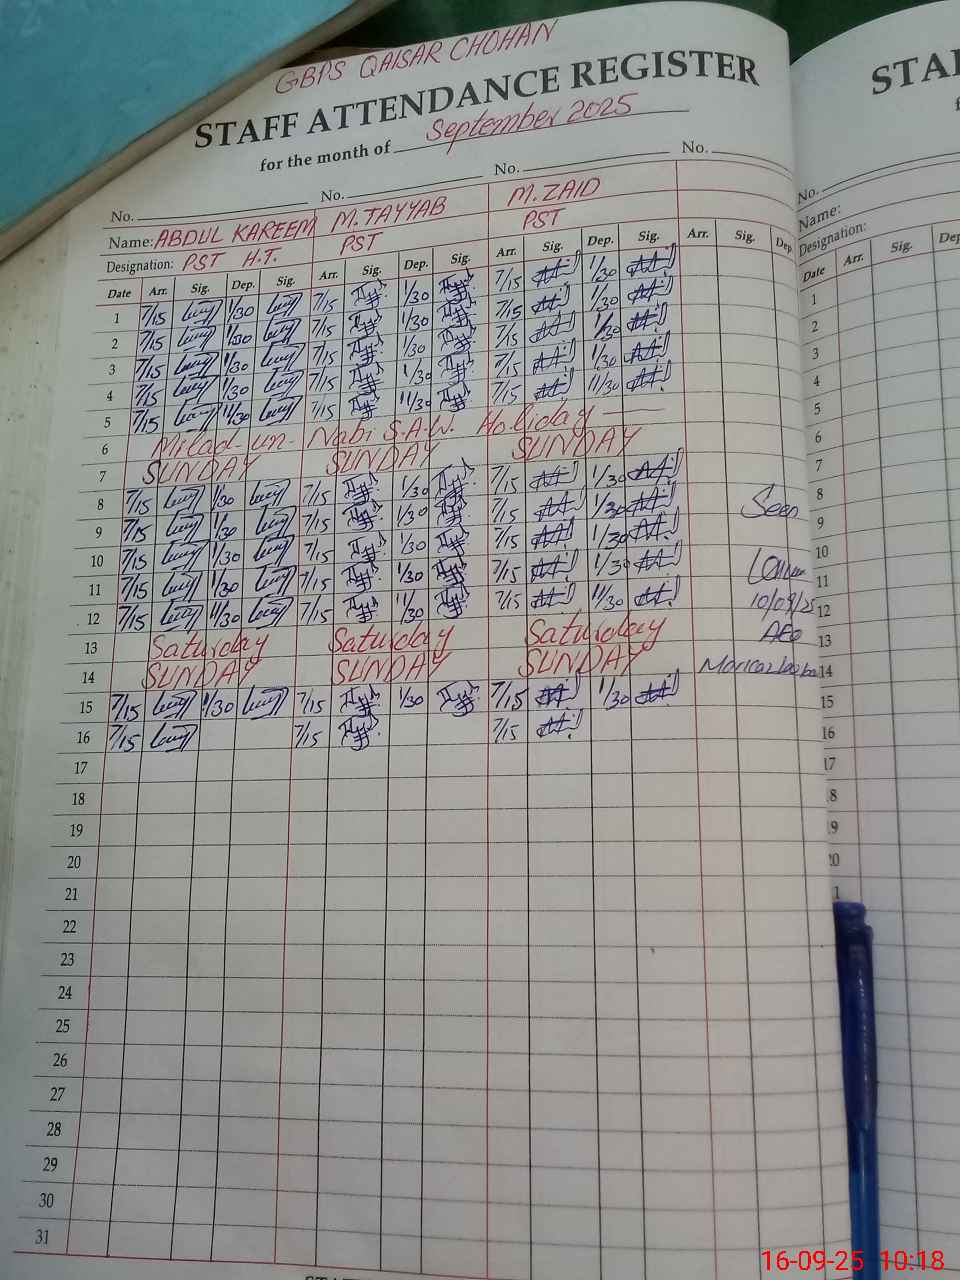 GBPS QAISAR CHOHAN
STAFF ATTENDANCE REGISTER
for the month of September 2025
No. No. No. No.
Name: ABDUL KAREEM M. TAYYAB M. ZAID
Designation: PST H.T. PST PST
Date Arr. Sig. Dep. Sig. Arr. Sig. Dep. Sig. Arr. Sig. Dep. Sig. Arr. Sig. Dep.
1 7/15 1/30 7/15 1/30 7/15 1/30
2 7/15 1/30 7/15 1/30 7/15 1/30
3 7/15 1/30 7/15 1/30 7/15 1/30
4 7/15 1/30 7/15 1/30 7/15 1/30
5 7/15 11/30 7/15 11/30 7/15 11/30
6 Milad-un-Nabi S.A.W. Holiday
7 SUNDAY SUNDAY SUNDAY
8 7/15 1/30 7/15 1/30 7/15 1/30
Seen
9 7/15 1/30 7/15 1/30 7/15 1/30
10 7/15 1/30 7/15 1/30 7/15 1/30
11 7/15 1/30 7/15 1/30 7/15 1/30
10/09/25
12 7/15 11/30 7/15 11/30 7/15 11/30
AEO
13 Saturday Saturday Saturday
14 SUNDAY SUNDAY SUNDAY
15 7/15 1/30 7/15 1/30 7/15 1/30
16 7/15 7/15 7/15
17
18
19
20
21
22
23
24
25
26
27
28
29
30
31
STA
f
No.
Name:
Designation:
Date Arr. Sig. Dep
1
2
3
4
5
6
7
8
9
10
11
12
13
14
15
16
17
18
19
20
16-09-25 10:18